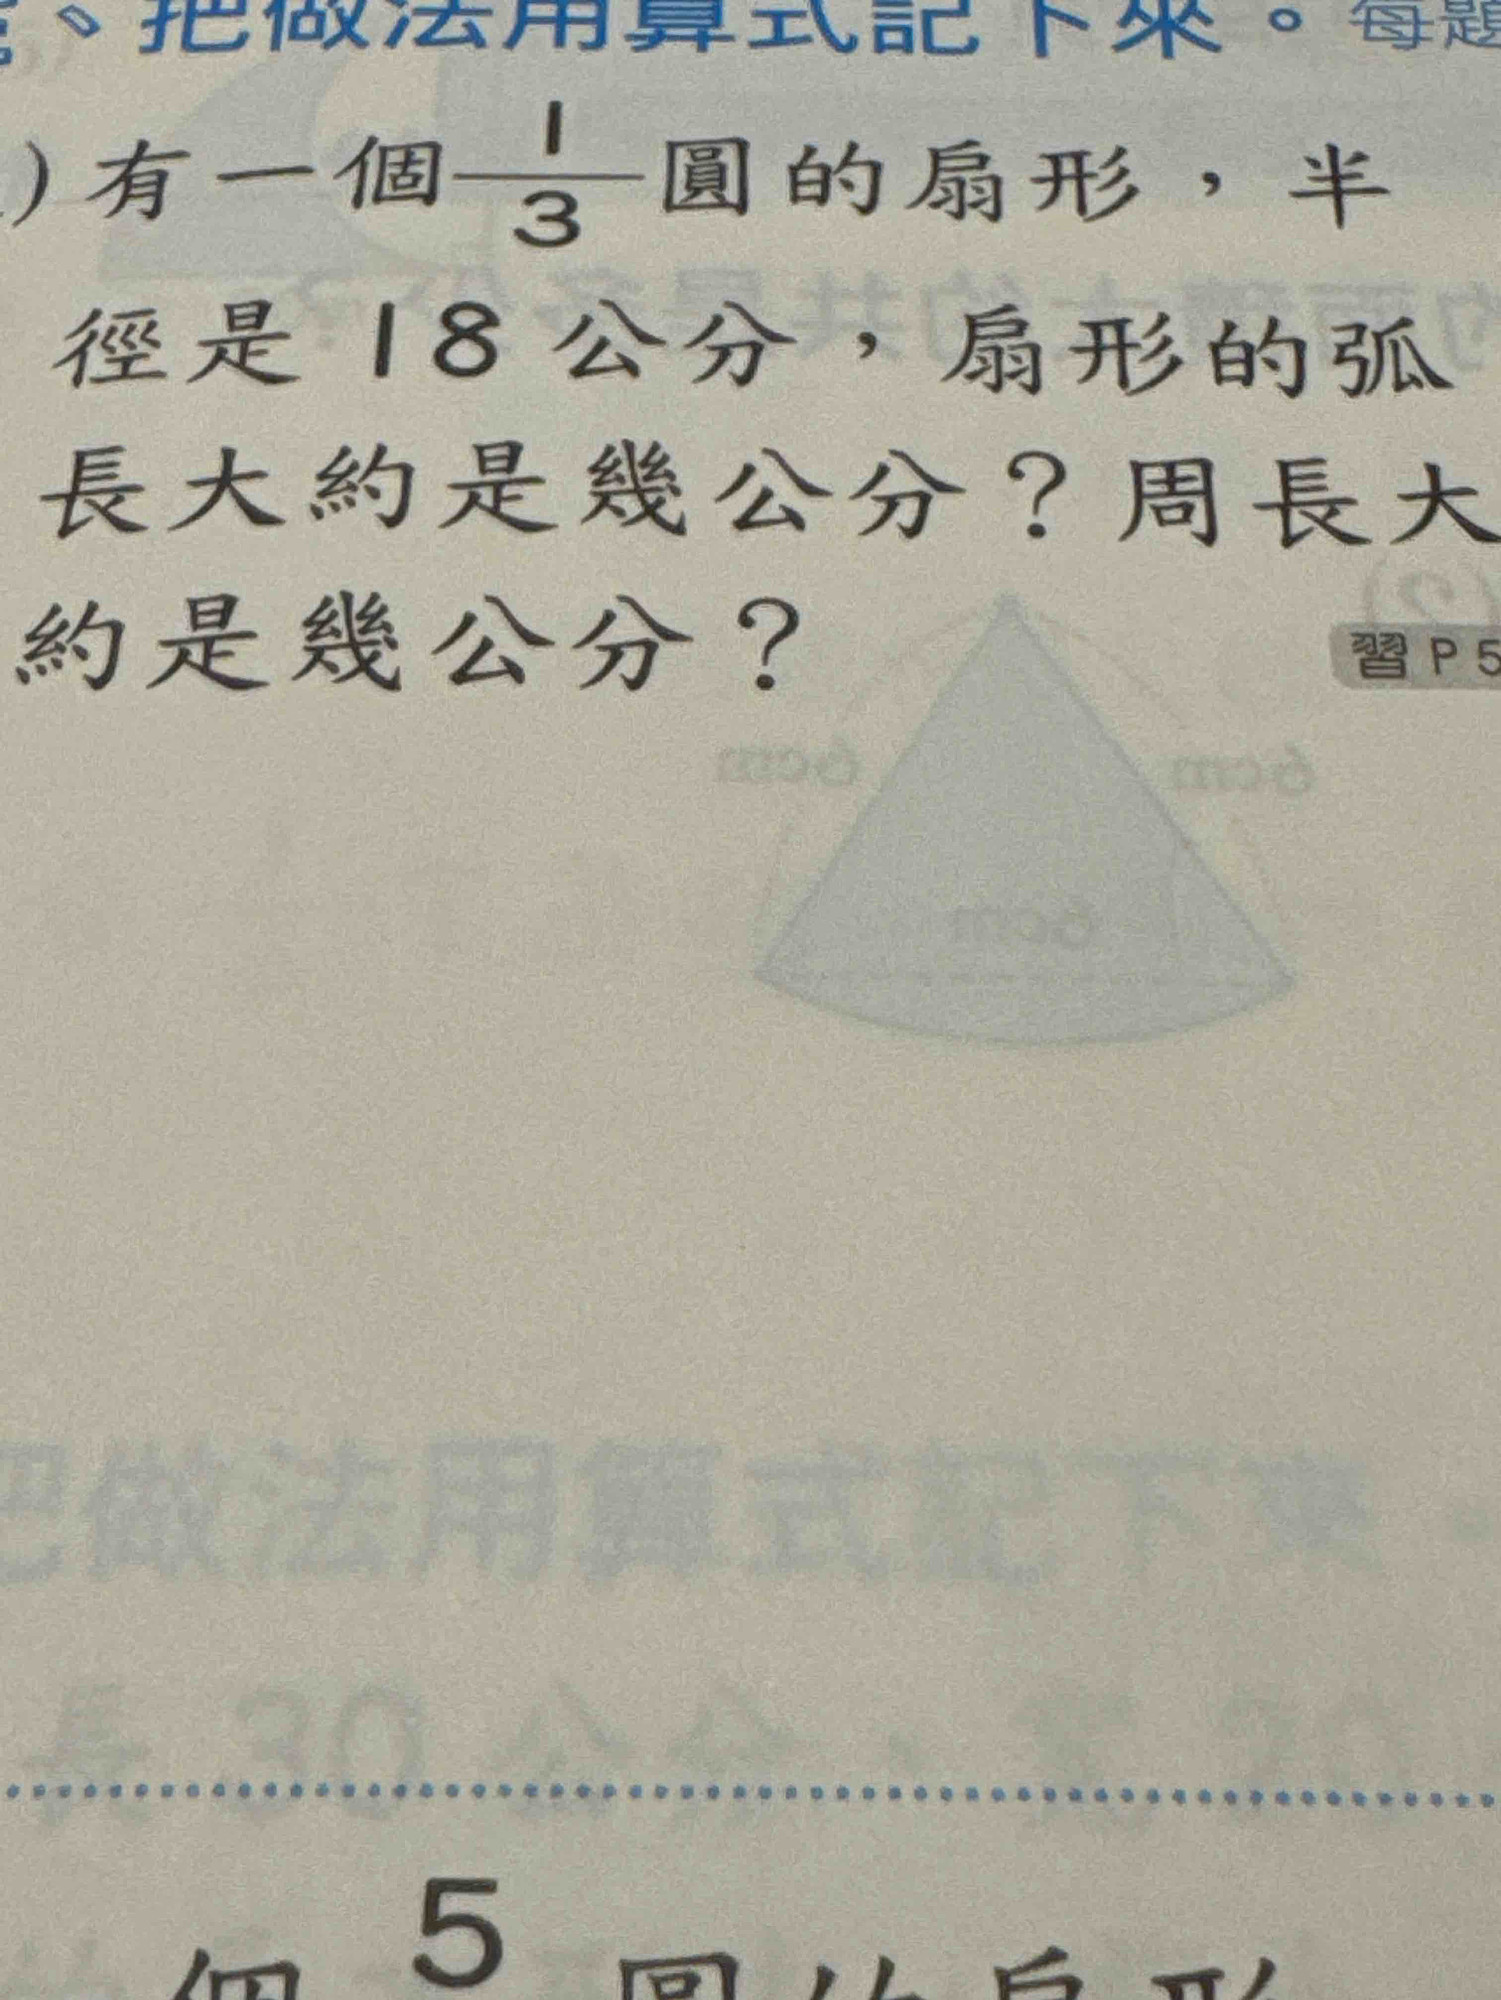 、把做法用算式記下來。每題
)有一個1/3圓的扇形，半
徑是18公分，扇形的弧
長大約是幾公分？周長大
約是幾公分？
習P5
個5圓的扇形